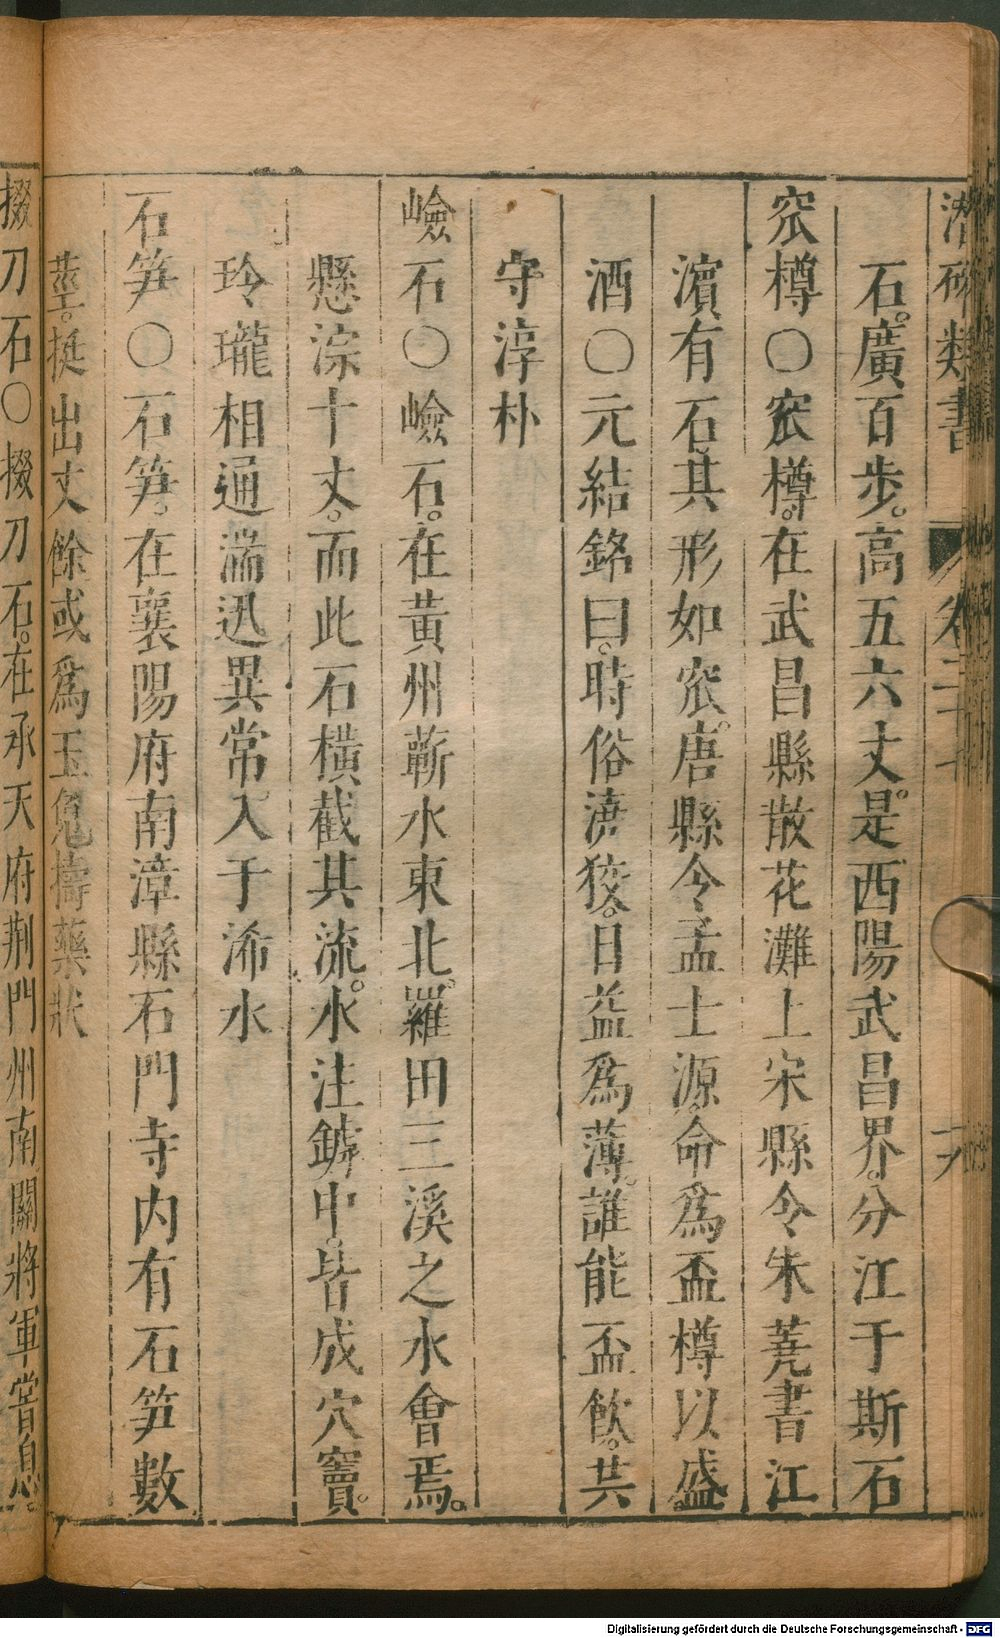 潛確類書 卷二十七 十六
石。廣百步。高五六丈。是西陽武昌界。分江于斯石
窊樽○窊樽。在武昌縣散花灘上宋縣令朱蒍書江
濵有石。其形如窊。唐縣令孟士源。命為盃樽以盛
酒○元結銘曰。時俗澆狡。日益爲薄。誰能盃飲。共
守淳朴
嶮石○嶮石。在黃州蘄水東北。羅田三溪之水會焉。
懸淙十丈。而此石橫截其流。水注罅中。皆成穴竇。
玲瓏相通湍迅異常。入于浠水
石笋○石笋。在襄陽府南漳縣石門寺内有石笋數
莖。挺出丈餘或爲玉兔擣藥狀
掇刀石○掇刀石。在承天府荆門州南關將軍嘗息
Digitalisierung gefördert durch die Deutsche Forschungsgemeinschaft - DFG